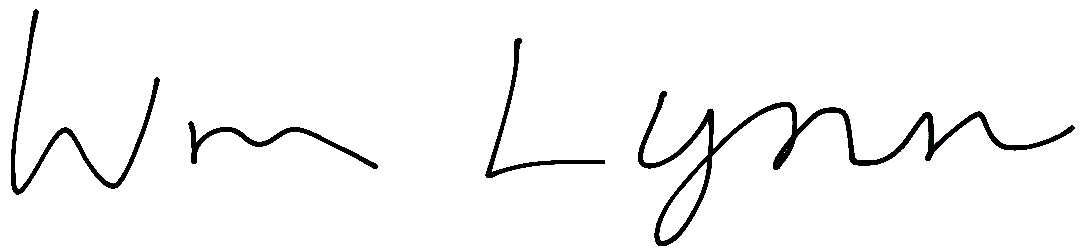 Wm Lynn